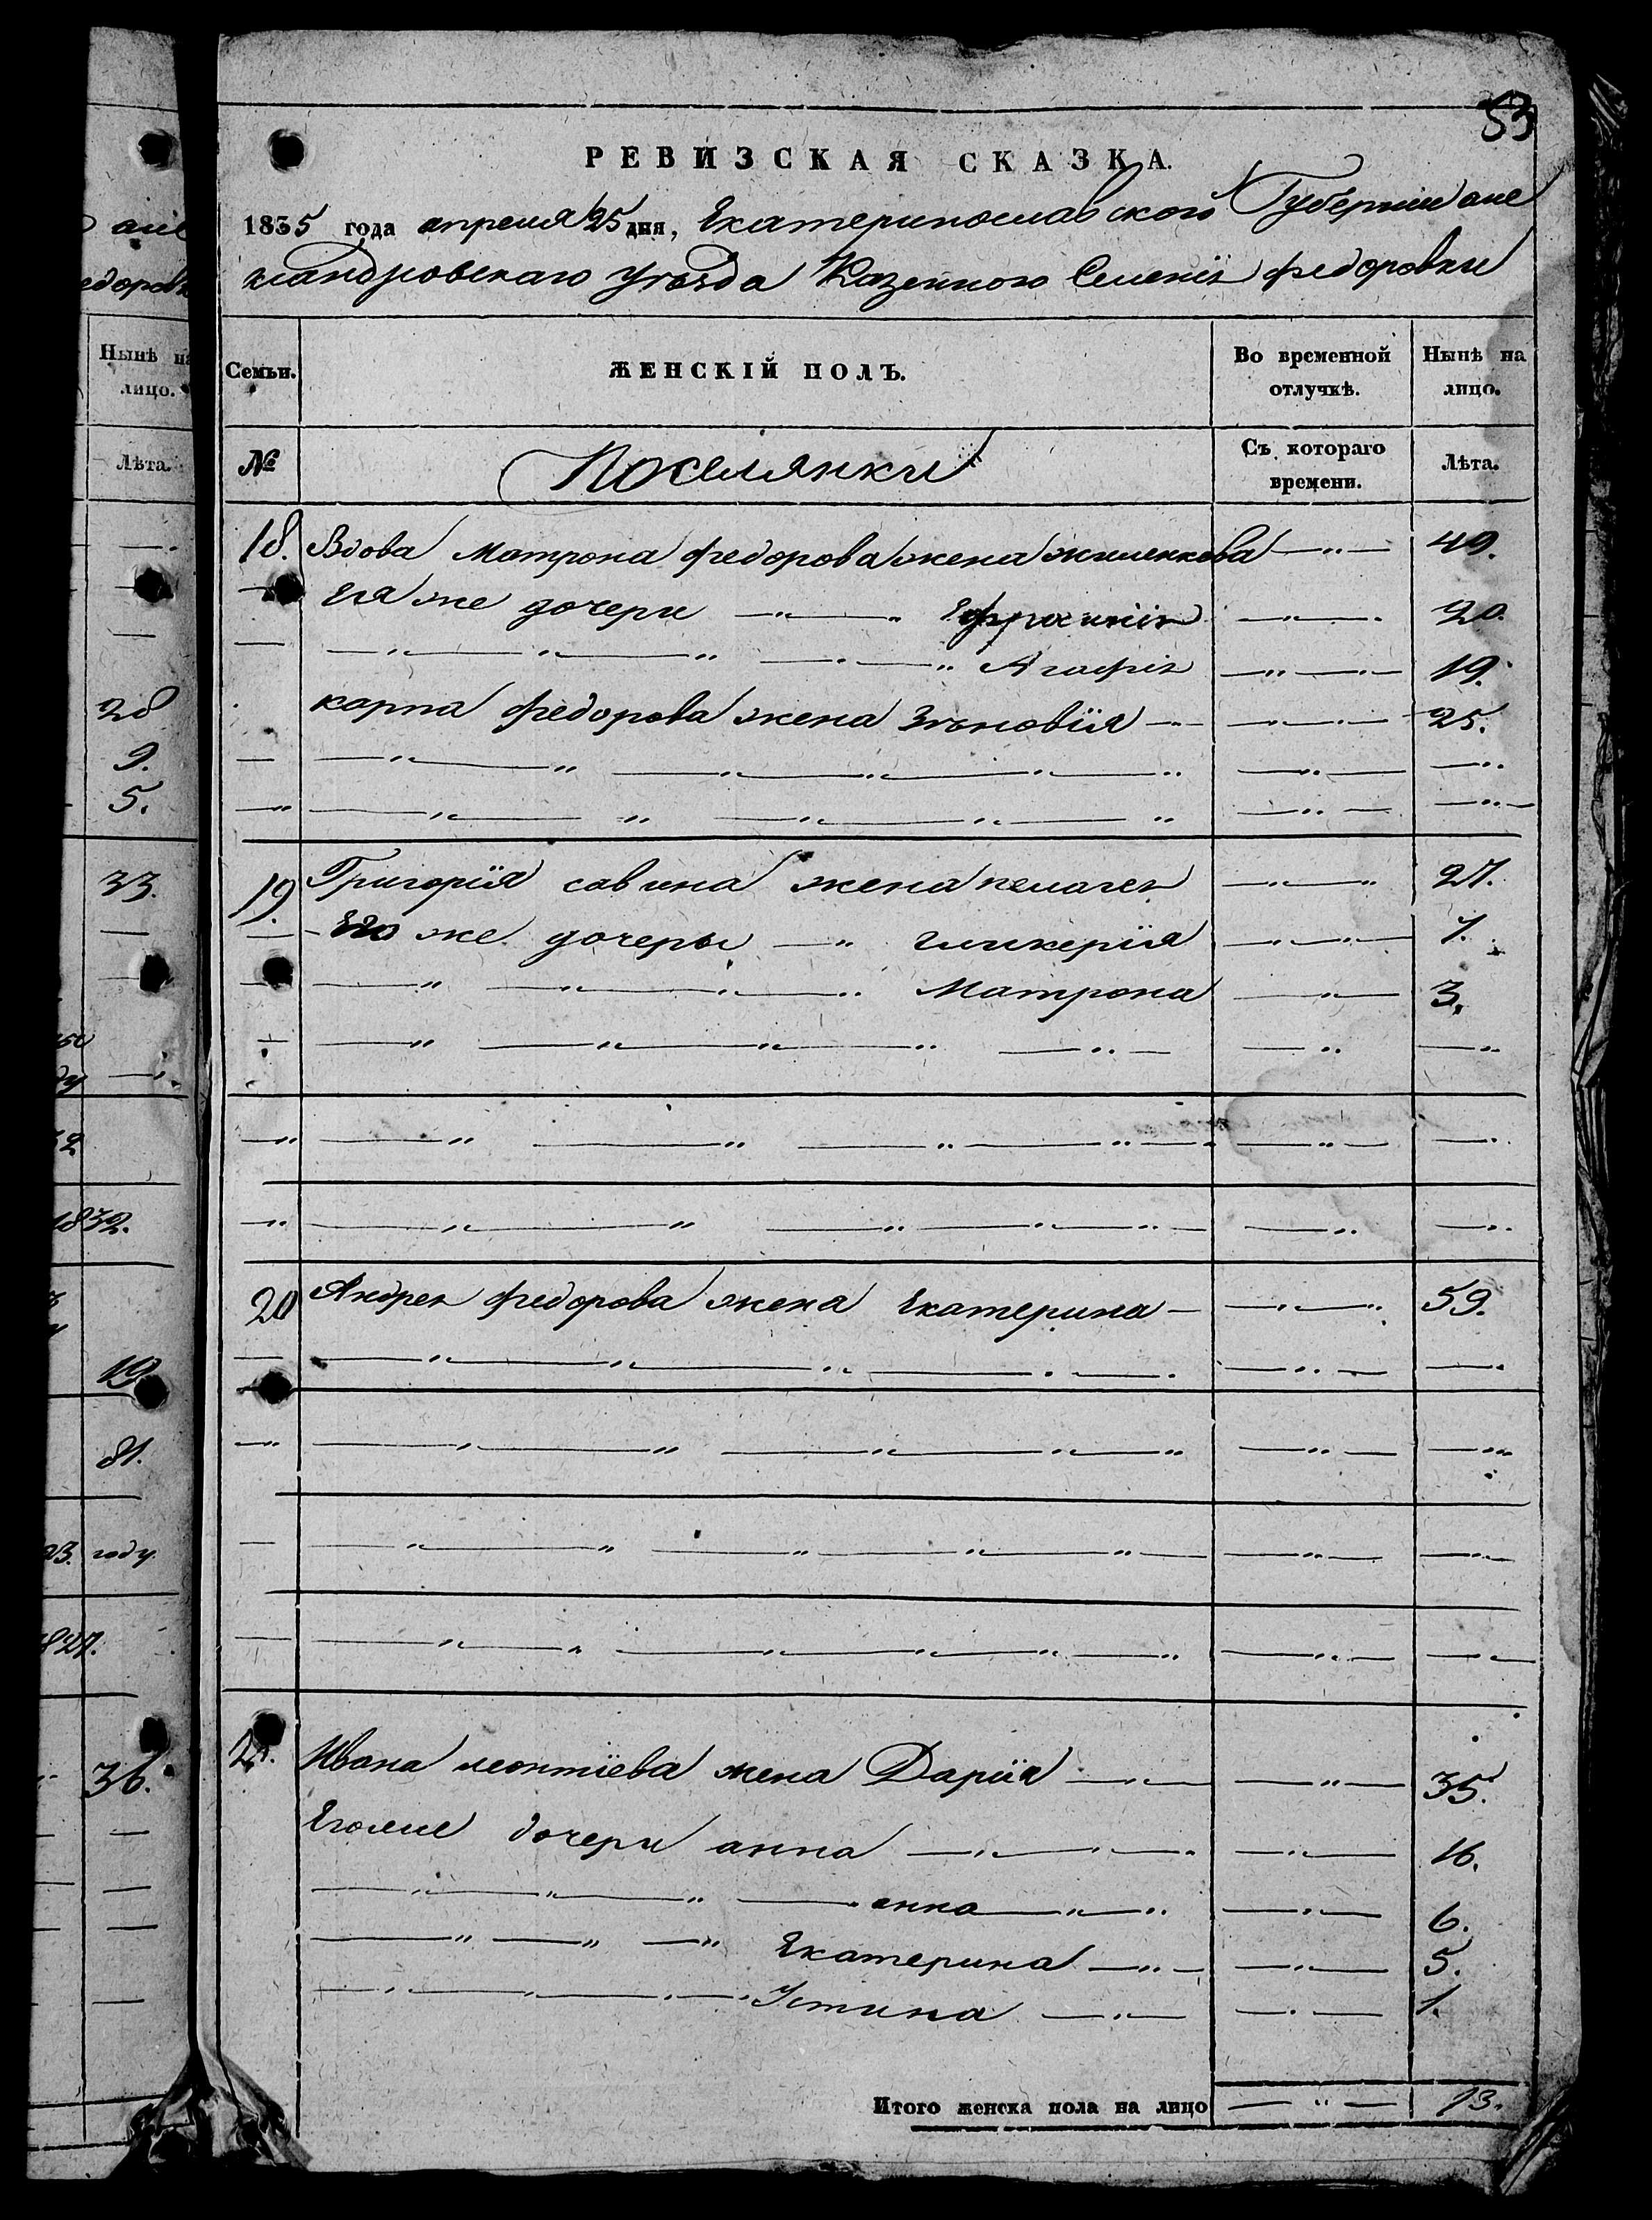 але
едоровк
Нынѣ на
лицо.
Лѣта.
28
9.
5.
33.
32
1832.
19
81.
23. году
1827.
36.
53
РЕВИЗСКАЯ СКАЗКА.
1835 года апреля 25 дня, Екатеринославского Губернии але
ксандровскаго уѣзда Казенного Селенія федоровки
Семьи. ЖЕНСКІЙ ПОЛЪ. Во временной отлучкѣ. Нынѣ на лицо.
№ Поселянки Съ котораго времени. Лѣта.
18. Вдова Матрона федорова жена —"— 49.
Ея же дочери —"— Ефросинія —"— 20.
—"—"—"— Агафія —"— 19.
карпа федорова жена Зѣновїя —"— 25.
19. Григорїя савина жена пелагея —"— 27.
Его же дочеры —"— гликерїя —"— 7.
—"—"— Матрона —"— 3.
20 Андрея федорова жена Екатерина —"— 59.
21. Ивана леонтїева жена Дарїя —"— 35.
Егоже дочери анна —"— 16.
—"—"—"— анна —"— 6.
—"—"—"— Екатерина —"— 5.
—"—"—"— Устина —"— 1.
Итого женска пола на лицо —"— 13.